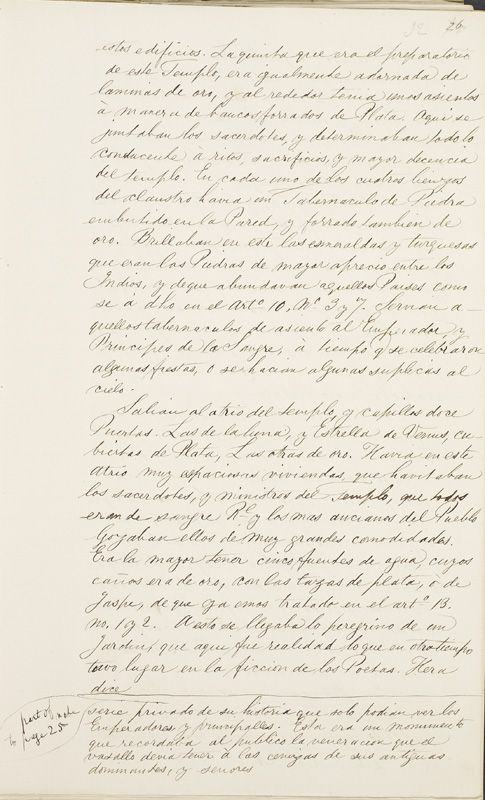 32 26
estos edificios. La quinta que era el preparatorio
de este Templo, era igualmente adornada de
laminas de oro, y al rededor tenia unos asientos
à manera de bancos forrados de Plata. Aqui se
juntaban los sacerdotes, y determinaban todo lo
conducente à ritos, sacrificios, y mayor decencia
del templo. En cada uno de los cuatros lienzos
del claustro havia un Tabernaculo de Piedra
embutido en la Pared, y forrado tambien de
oro. Brillaban en este las esmeraldas y turquesas
que eran las Piedras de mayor aprecio entre los
Indios, y de que abundavan aquellos Paises como
se à dho en el Artº 10, Nº 3 y 7. Servian a-
quellos tabernaculos de asiento al Emperador, y
Principes de la Sangre, à tiempo q se celebraron
algunas fiestas, o se hacian algunas suplicas al
cielo.
Salian al atrio del templo, y capillas doce
Puertas. Las de la luna, y Estrella de Venus, cu-
biertas de Plata, Las otras de oro. Havia en este
Atrio muy espaciosas viviendas, que havitaban
los sacerdotes, y ministros del Templo, que todos
eran de sangre Rl y los mas ancianos del Pueblo
Gozaban ellos de muy grandes comodidades.
Era la mayor tener cinco fuentes de agua, cuyos
caños era de oro, con las tazas de plata, o de
Jaspe, de que ya emos tratado en el artº 13.
no. 1 y 2. A esto se llegaba lo peregrino de un
Jardin, que aqui fue realidad lo que en otro tiempo
tuvo lugar en la ficcion de los Poetas. Hera
dice
part of note
to page 25
serie privado de su historia que solo podian ver los
Emperadores y principales. Esta era un monumento
que recordaba al publico la veneracion que el
vasallo devia tener à las cenizas de sus antiguas
dominantes, y señores